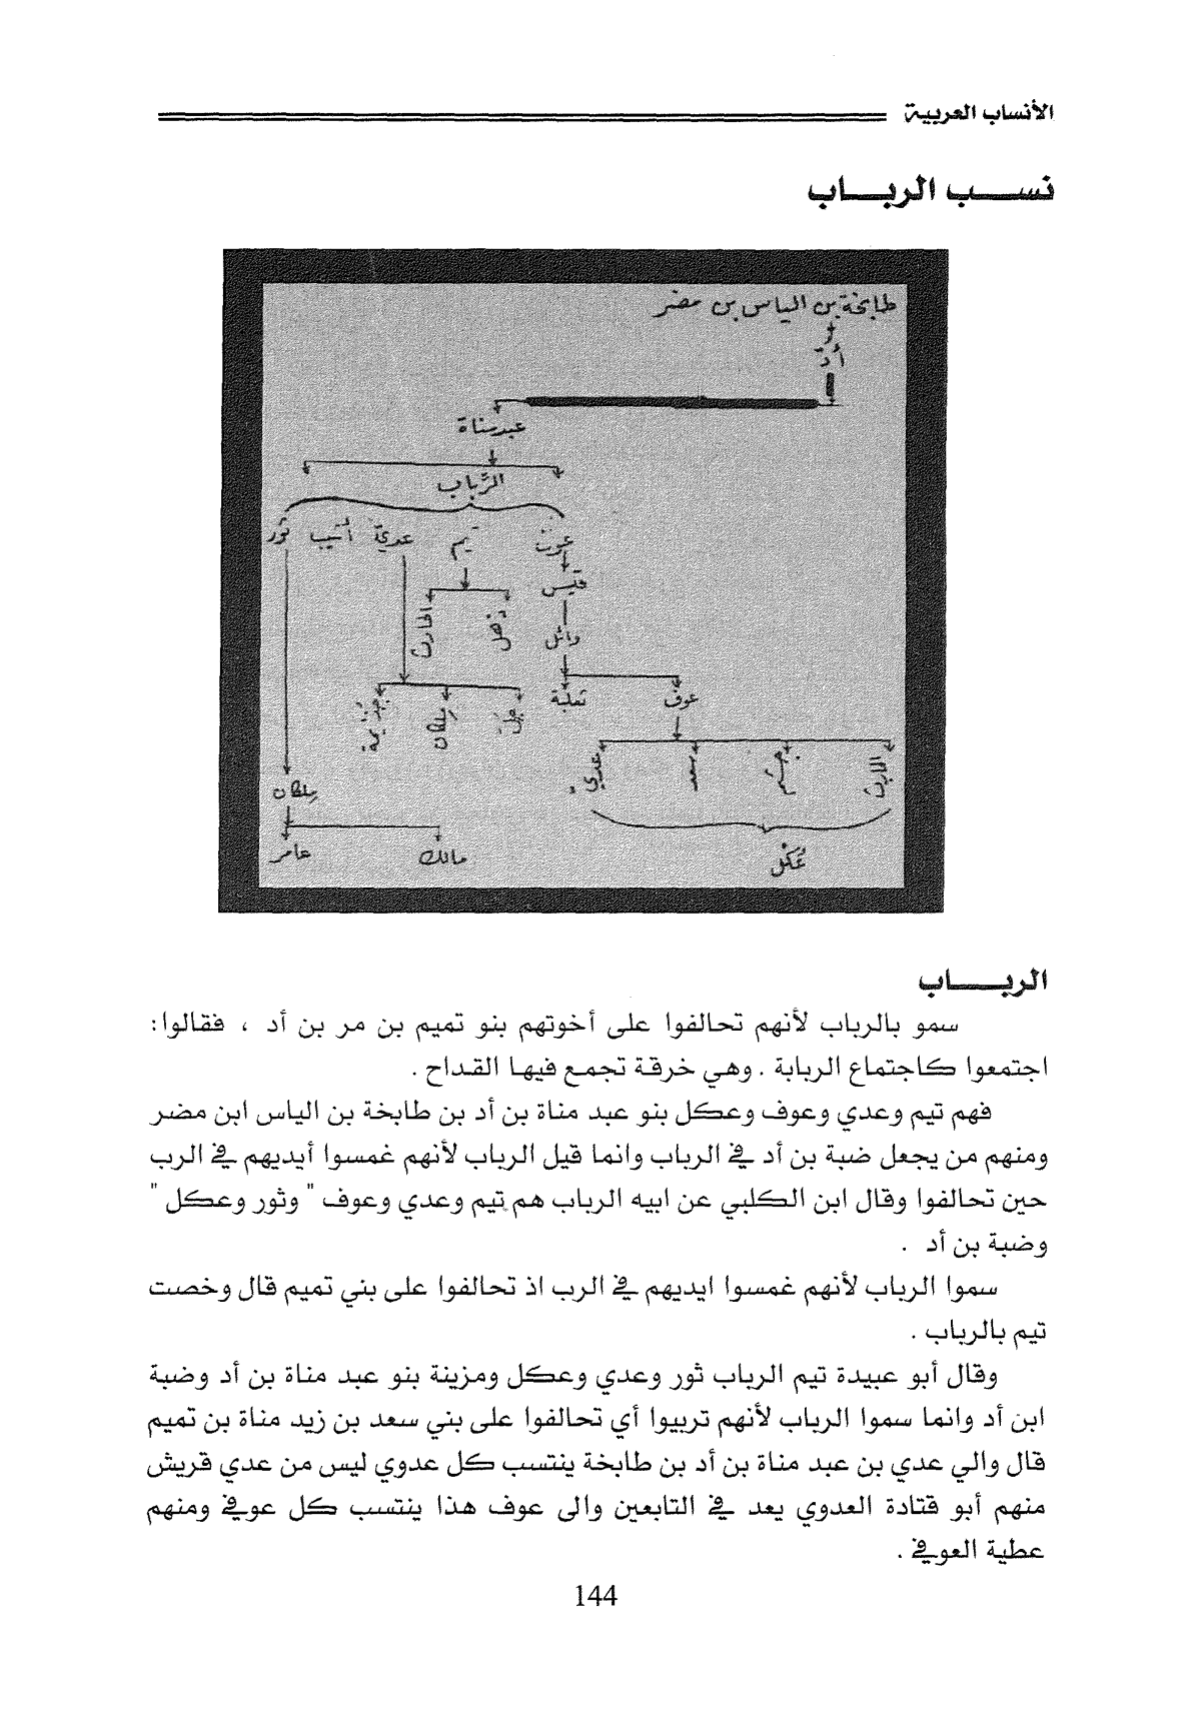 الأنساب العربية
نسب الرباب
طابخة بن الياس بن مضر
أد
عبد مناة
الرَّباب
عوف تيم عديّ أشيب ثور
قيس
ذهل الحارث
وائل
عوف ثعلبة
جلّ مِلكان جَذيمة
الحارث جشم سعد عديّ
مِلكان
عُكْل
مالك عامر
الرباب
سمو بالرباب لأنهم تحالفوا على أخوتهم بنو تميم بن مر بن أد ، فقالوا:
اجتمعوا كاجتماع الربابة . وهي خرقة تجمع فيها القداح .
فهم تيم وعدي وعوف وعكل بنو عبد مناة بن أد بن طابخة بن الياس ابن مضر
ومنهم من يجعل ضبة بن أد في الرباب وانما قيل الرباب لأنهم غمسوا أيديهم في الرب
حين تحالفوا وقال ابن الكلبي عن ابيه الرباب هم تيم وعدي وعوف " وثور وعكل "
وضبة بن أد .
سموا الرباب لأنهم غمسوا ايديهم في الرب اذ تحالفوا على بني تميم قال وخصت
تيم بالرباب .
وقال أبو عبيدة تيم الرباب ثور وعدي وعكل ومزينة بنو عبد مناة بن أد وضبة
ابن أد وانما سموا الرباب لأنهم ترببوا أي تحالفوا على بني سعد بن زيد مناة بن تميم
قال والي عدي بن عبد مناة بن أد بن طابخة ينتسب كل عدوي ليس من عدي قريش
منهم أبو قتادة العدوي يعد في التابعين والى عوف هذا ينتسب كل عوفي ومنهم
عطية العوفي .
144